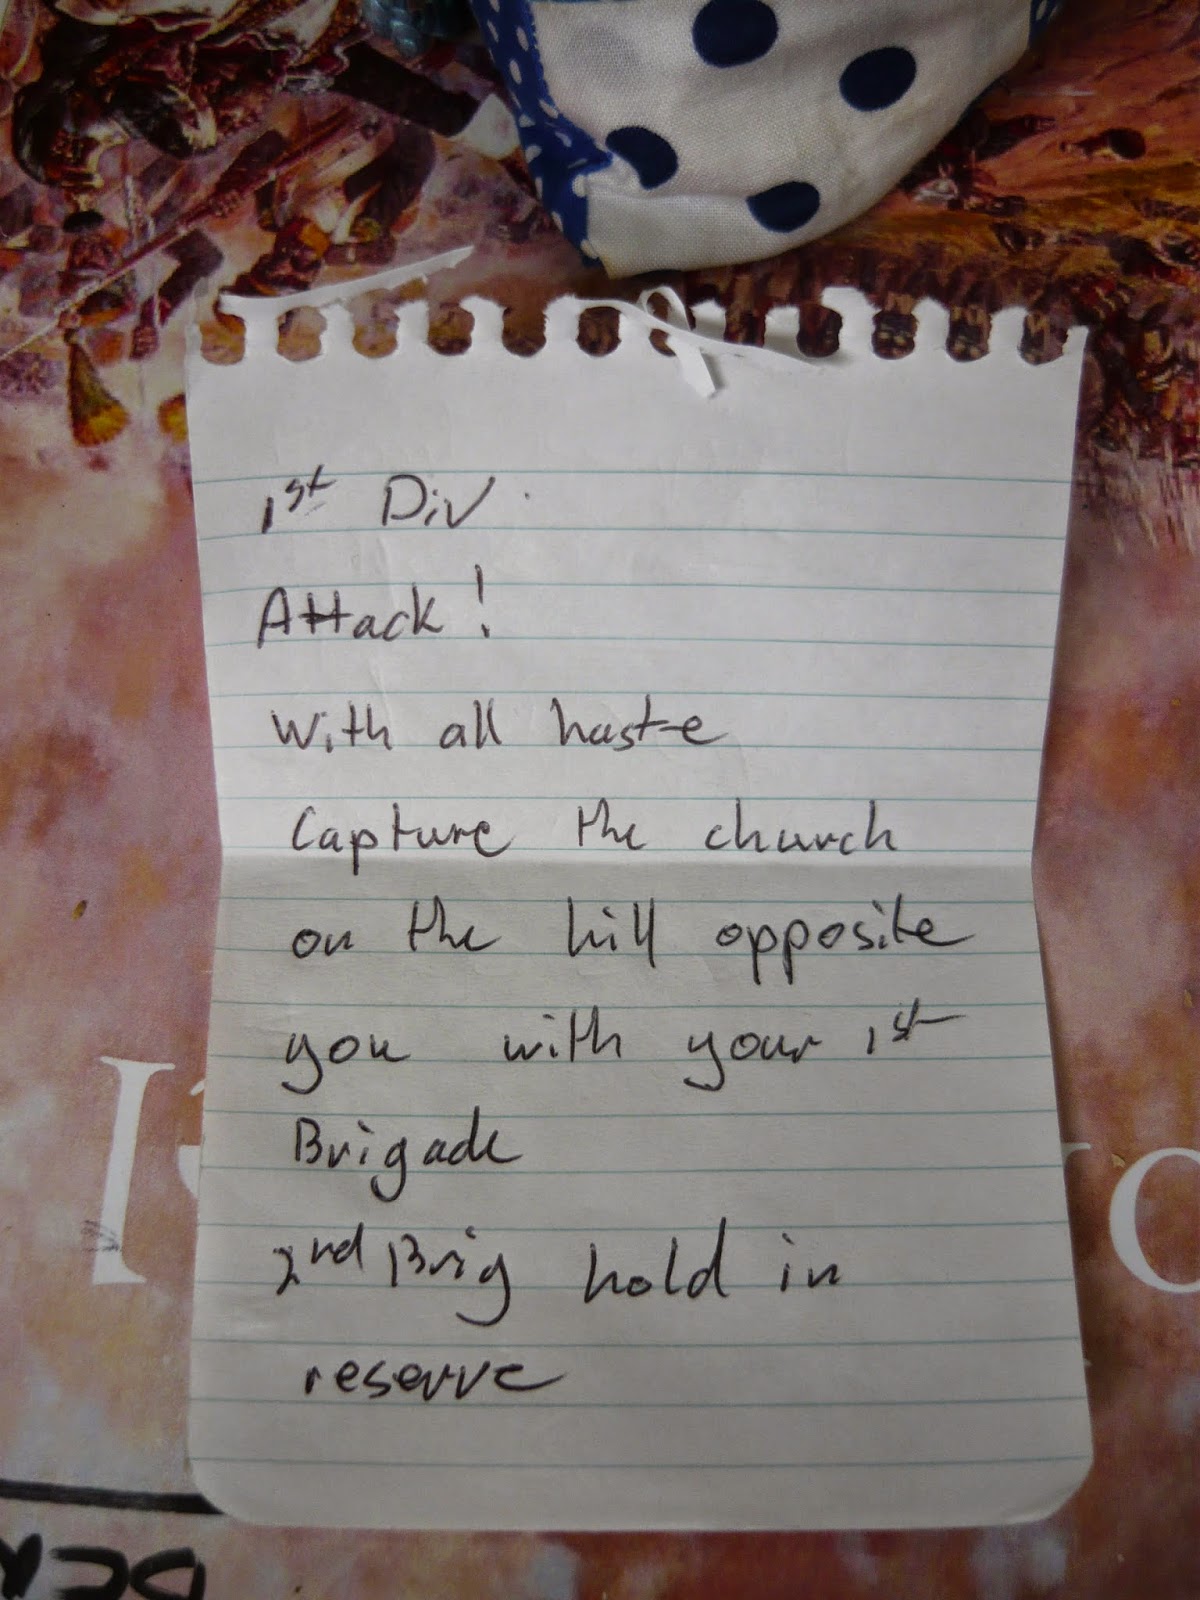 1st Div.
Attack!
With all haste
Capture the church
on the hill opposite
you with your 1st
Brigade
2nd Brig hold in
reserve